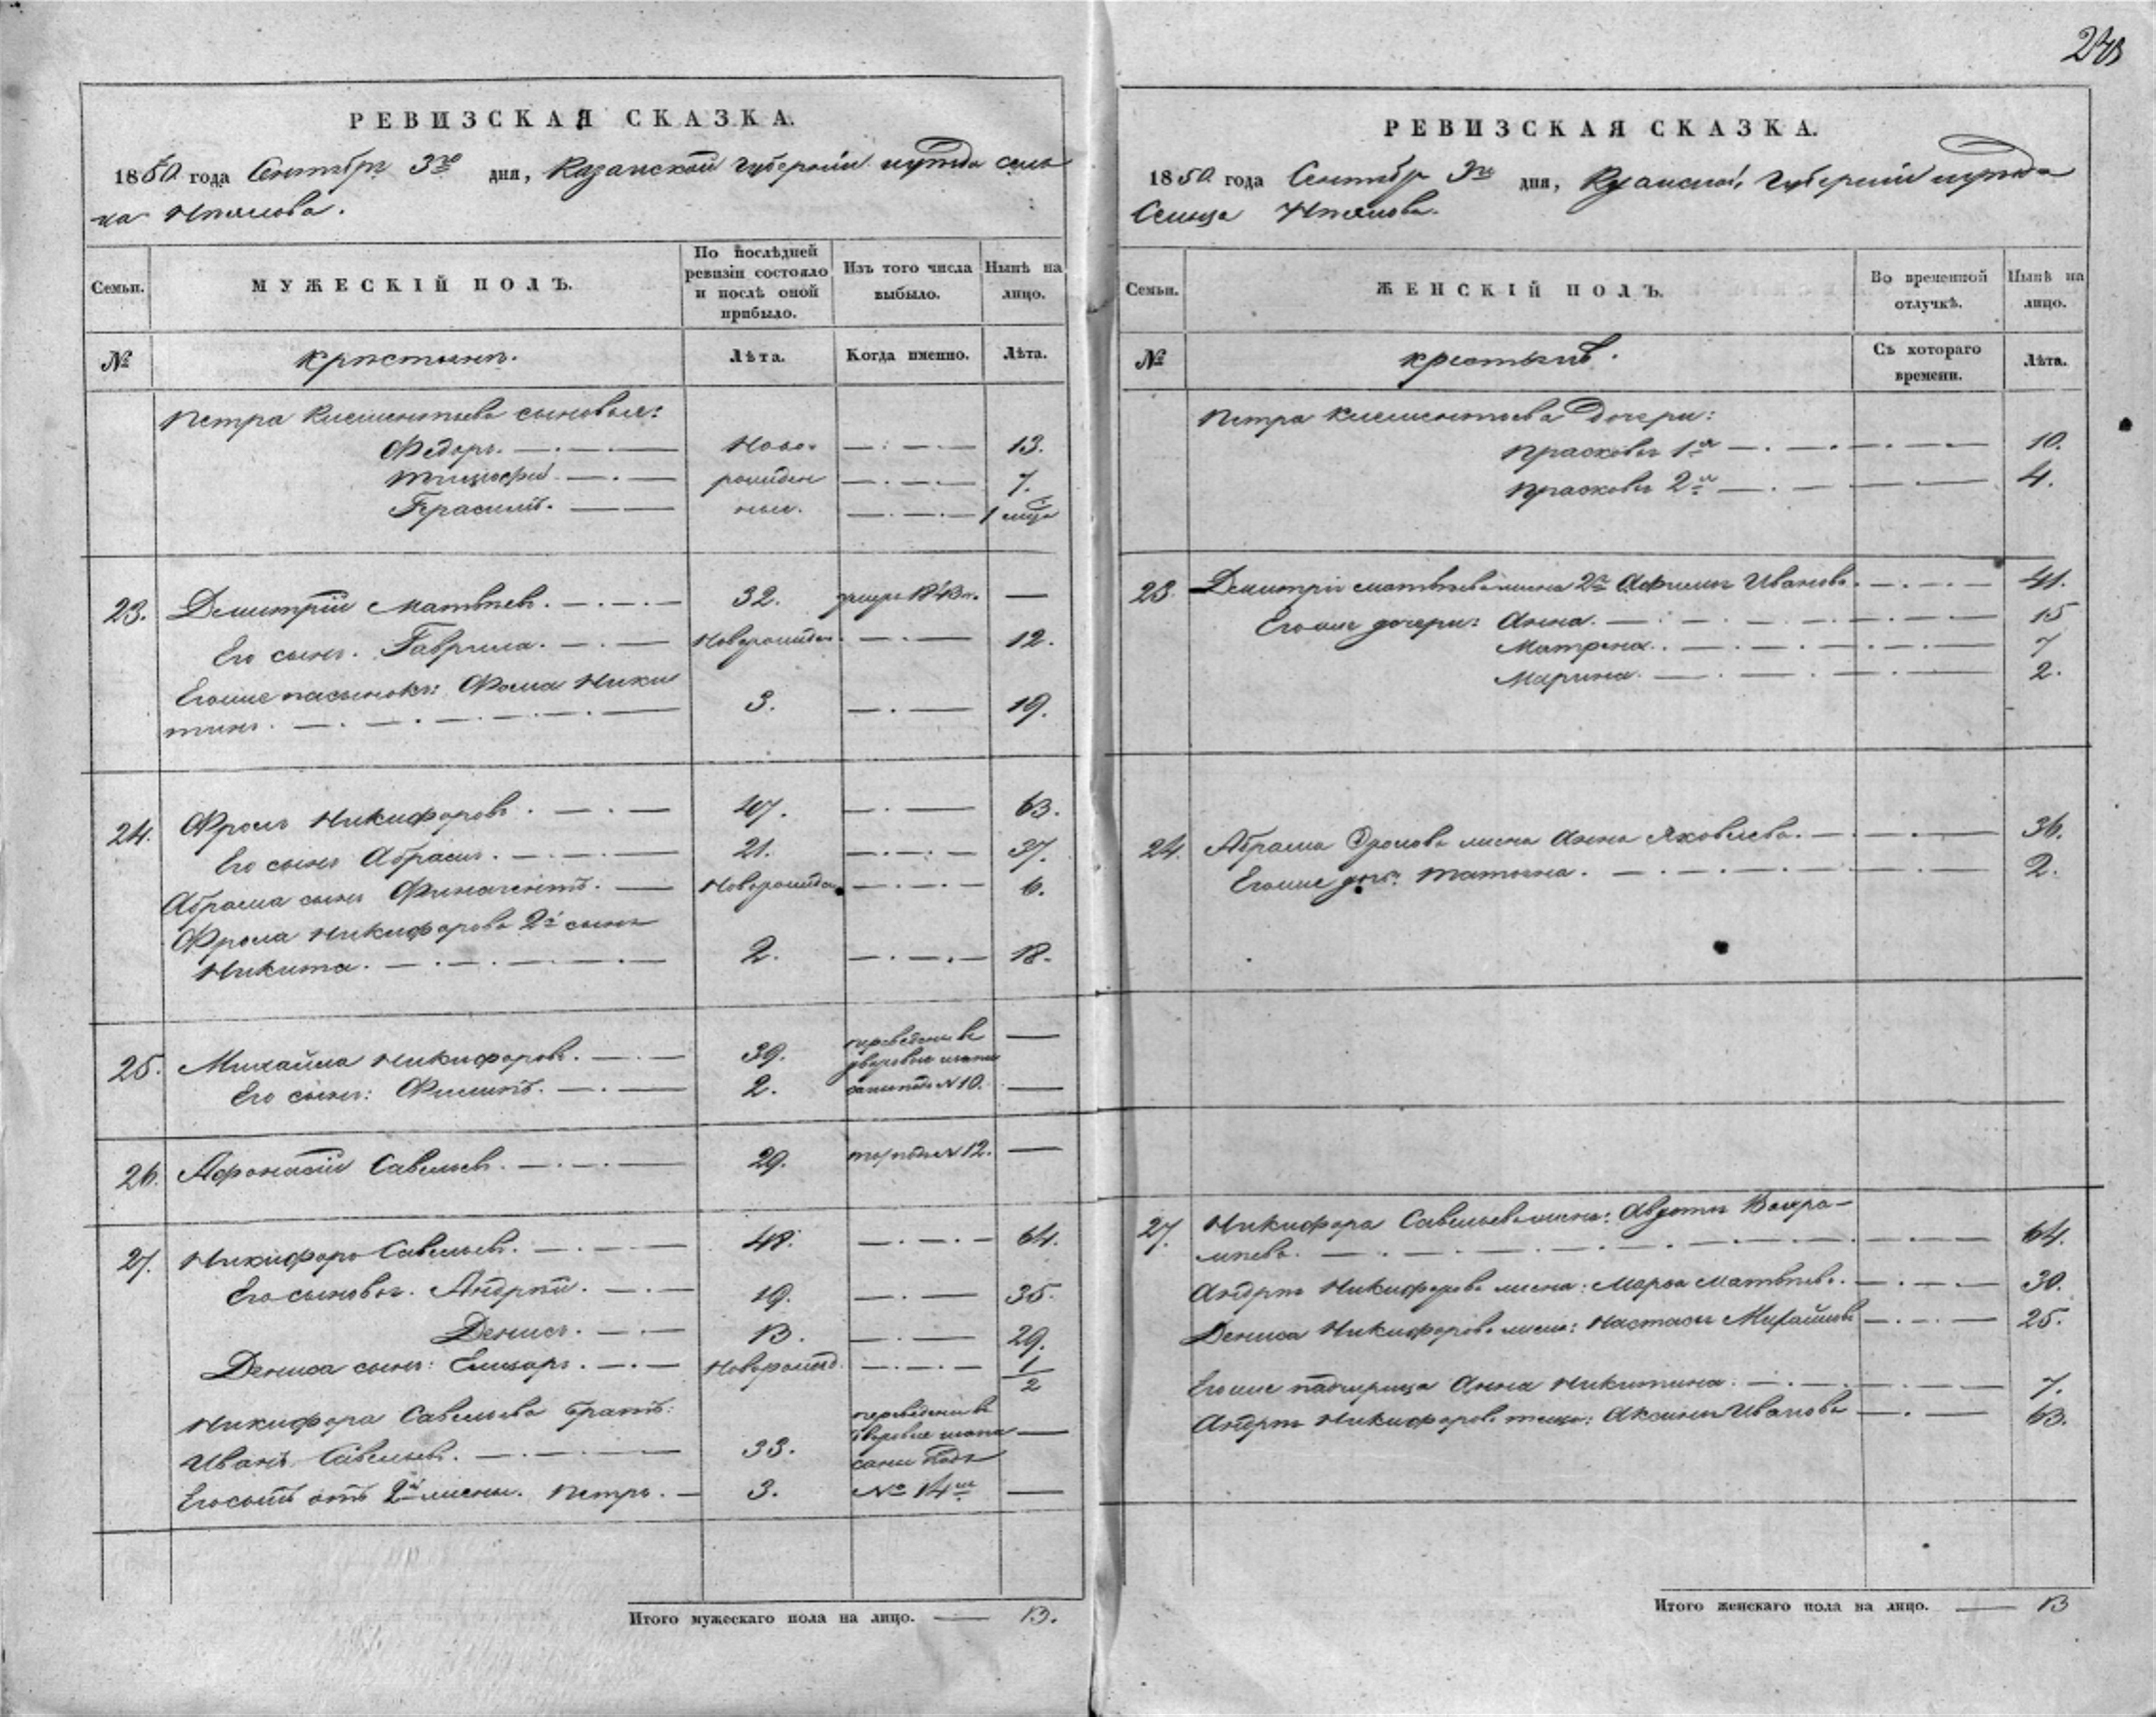 243
РЕВИЗСКАЯ СКАЗКА.
1850 года Сентября 3го дня, Казанской губернии уезда сель
ца
Семьи.
МУЖЕСКІЙ ПОЛЪ.
По послѣдней ревизіи состояло и послѣ оной прибыло.
Изъ того числа выбыло.
Нынѣ на лицо.
№
крестьяне.
Лѣта.
Когда именно.
Лѣта.
Петра Клементьева сыновья:
Федоръ. — Ново- — 13.
Тимофей — рожден — 7.
Герасимъ. — ные. — 1 мца
23. Дмитрій Матвѣев. — 32. умеръ 1843 г. —
Его сынъ. Гаврила. — Новорожден — 12.
Егоже пасынокъ: Фома Ники
тинъ. — 3. — 19.
24. Фролъ Никифоровъ. — 47. — 63.
Его сынъ Абрамъ. — 21. — 37.
Абрама сынъ — Новорожден — 6.
Фрола Никифорова 2й сынъ
Никита. — 2. — 18.
25. Михайла Никифоровъ. — 39. переведены въ дворовые —
Его сынъ: Филипъ. — 2. подъ №10. —
26. Афонасій Савельевъ. — 29. подъ №12. —
27. Никифоръ Савельевъ. — 48. — 64.
Его сыновья. Андрей. — 19. — 35.
Денисъ. — 13. — 29.
Дениса сынъ: Елизаръ. — Новорожд. — 1/2
Никифора Савельева братъ: переведены въ
Иванъ Савельевъ. — 33. дворовые подъ —
Его сынъ отъ 2й жены. Петръ. — 3. № 14м —
Итого мужескаго пола на лицо. — 13.
РЕВИЗСКАЯ СКАЗКА.
1850 года Сентября 3го дня, Казанской Губерніи уезда
Сельца
Семьи.
ЖЕНСКІЙ ПОЛЪ.
Во временной отлучкѣ.
Нынѣ на лицо.
№
крестьяне.
Съ котораго времени.
Лѣта.
Петра Клементьева Дочери:
Прасковья 1я — 10.
Прасковья 2я — 4.
23. Дмитрія Матвѣева жена 2я Афимья Иванова. — 41.
Егоже дочери: Анна. — 15
Матрена. — 7
Марина. — 2.
24. Абрама Фролова жена Анна Яковлева. — 36.
Егоже дочь: Татьяна. — 2.
27. Никифора Савельева жена: Авдотья
— 64.
Андрея Никифорова жена: Марфа Матвѣева. — 30.
Дениса Никифорова жена: Настасья Михайлова — 25.
Егоже падчерица Анна Никитина. — 7.
Андрея Никифорова теща: Аксинья Иванова — 63.
Итого женскаго пола на лицо. — 13